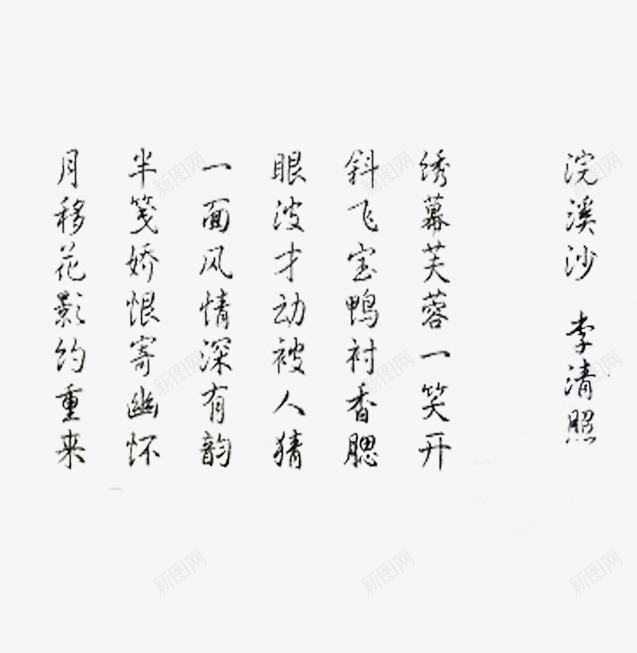 浣溪沙 李清照
绣幕芙蓉一笑开
斜飞宝鸭衬香腮
眼波才动被人猜
一面风情深有韵
半笺娇恨寄幽怀
月移花影约重来
新图网
新图网
新图网
新图网
新图网
新图网
新图网
新图网
新图网